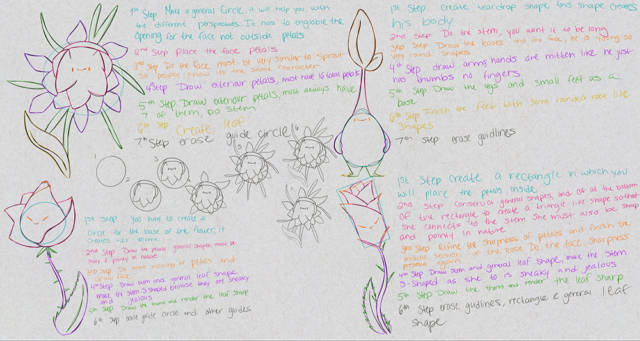 1st Step Make a general Circle, it will help you when
the different perspectives. It has to englobe the
Opening for the face not outside petals
2nd Step place the face petals
3rd Step Do the face, must be very similar to sprout
4th Step Draw exterior petals, must have 10 total petals
5th Step Draw exterior petals, must always have
7 of them, Do stem
6th Step Create leaf
7th Step erase guide circle
1st Step create teardrop shape, this shape creates
his body
2nd Step Do the stem, you want it to be long
3rd Step Draw the leaves and the face, he is a young so
very round shapes
4th Step, draw arms, hands are mitten like he just
has thumbs no fingers
5th Step Draw the legs and small feet as a
base
6th Step Finish the feet with some rounded root like
shapes
7th Step erase guidlines
1st Step You have to create a
Circle for the base of the flower, it
creates her
2nd Step Draw the general shapes, must be
pointy in nature
3rd Step of petals and
face
4th Step Draw stem and general leaf shape,
make the stem S shaped because they are sneaky
and jealous
5th Step Draw the thorns and render the leaf sharp
6th Step erase guide circle and other guides
1st Step Create a rectangle in which you
will place the petals inside
2nd Step Construct general shapes, and at the bottom
of the rectangle to create a triangle like shape so that
she connects to the stem She must also be sharp
and pointy in nature
3rd Step Refine the sharpness of petals and finish the
of the rose Do the face, sharpness
4th Step Draw stem and general leaf shape, make the stem
S-shaped as she to is sneaky and jealous
5th Step Draw the thorns and render the leaf sharp
6th Step erase guidlines, rectangle & general leaf
shape